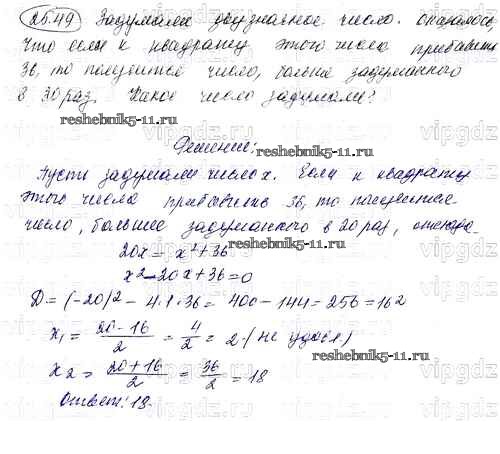 25.49 Задумали двузначное число. Оказалось,
что если к квадрату этого числа прибавить
36, то получится число, больше задуманного
в 30 раз. Какое число задумали?
reshebnik5-11.ru
Решение:
Пусть задумали число x. Если к квадрату
этого числа прибавить 36, то получится
число, большее задуманного в 20 раз, отсюда.
20x = x²+36
x²-20x+36=0
D = (-20)² - 4·1·36 = 400-144=256=16²
x₁ = (20-16)/2 = 4/2 = 2 (не удовл.)
x₂ = (20+16)/2 = 36/2 = 18
reshebnik5-11.ru
Ответ: 18.
vipgdz